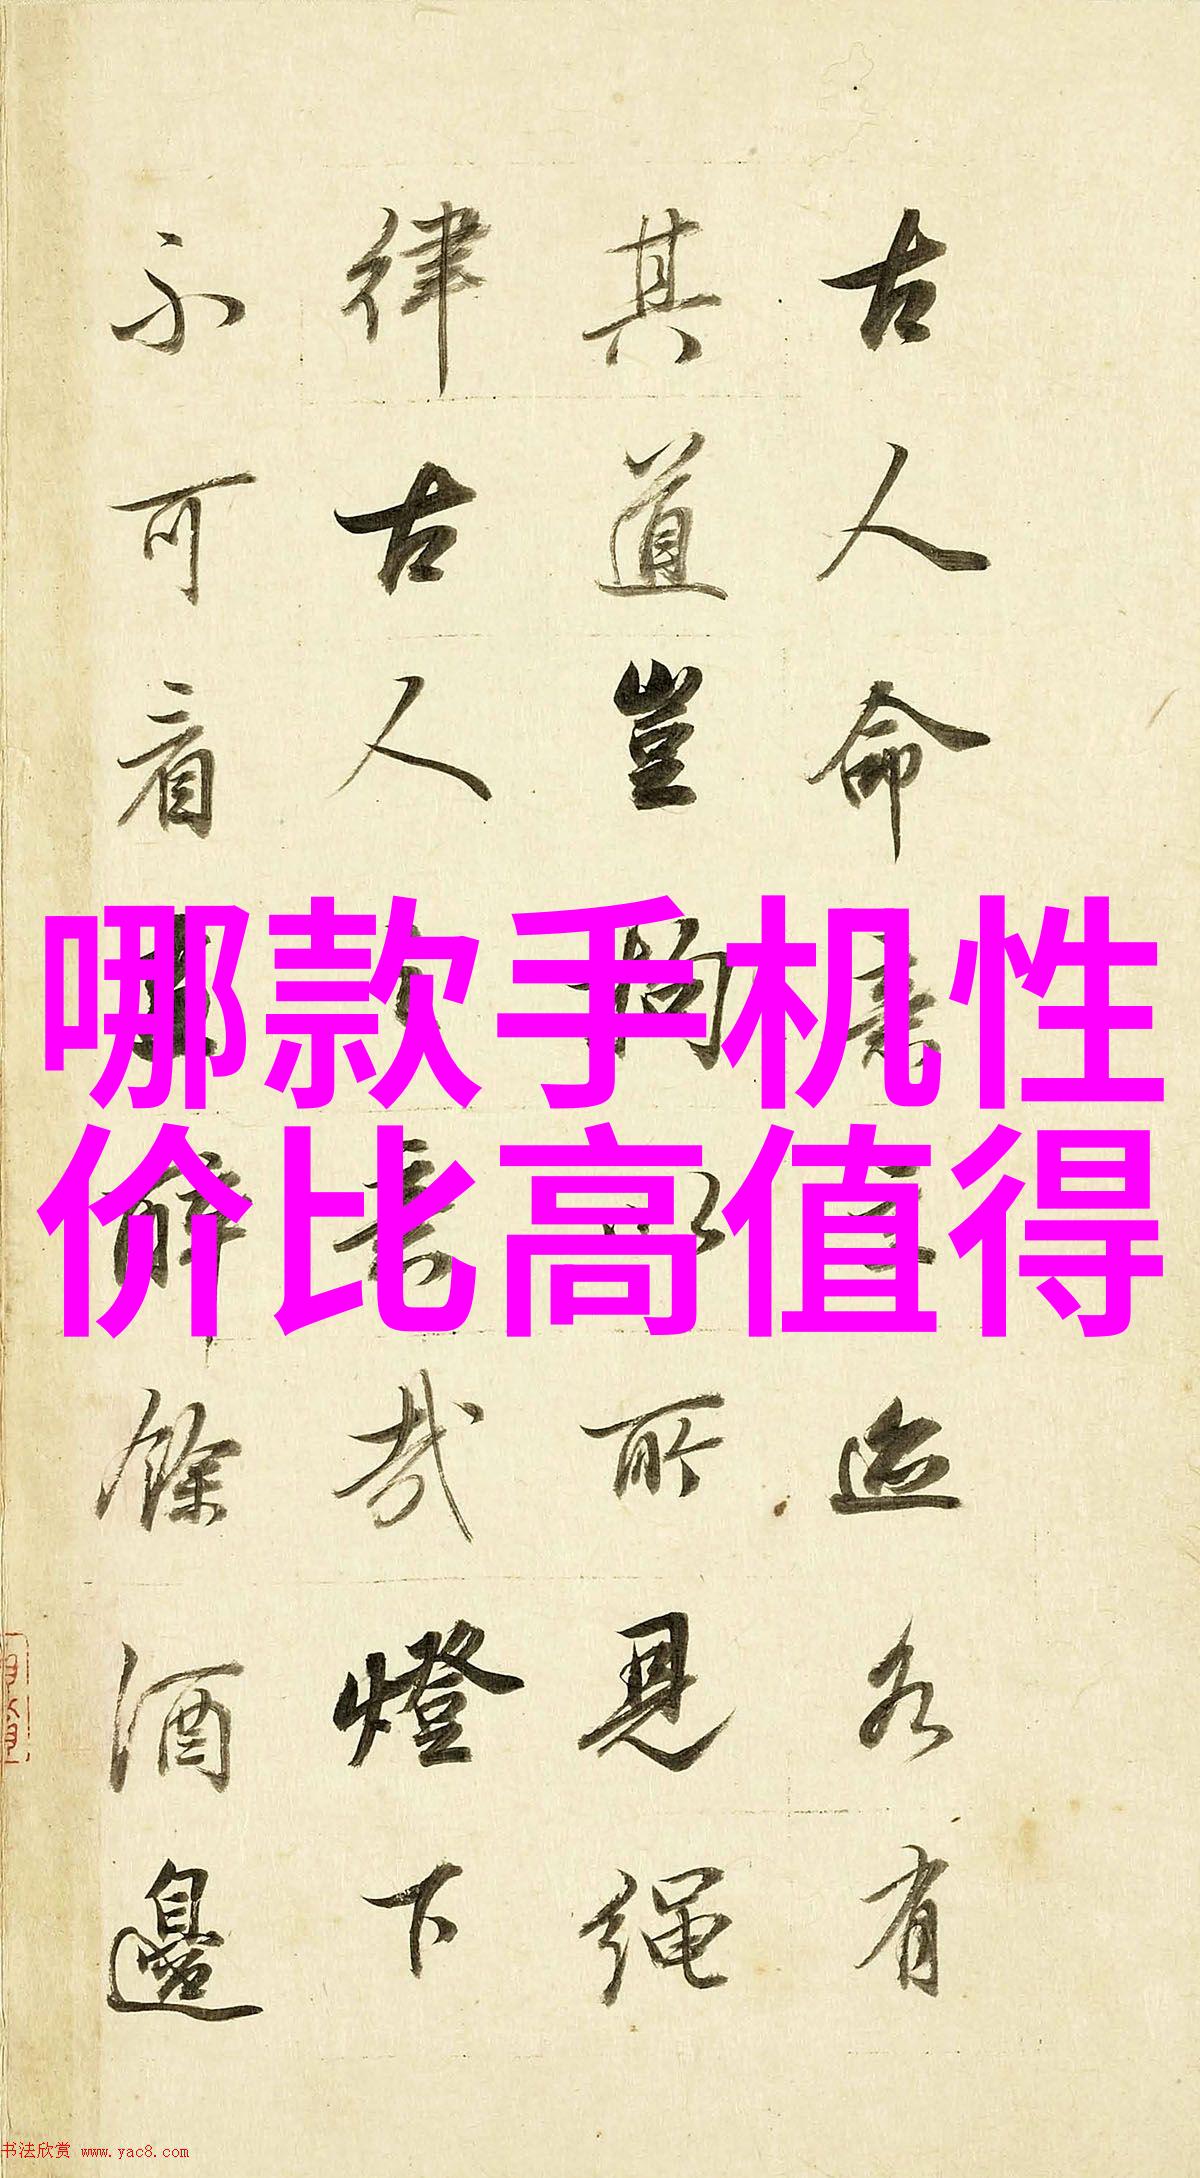 古人命意迹各有
其道豈拘所見繩
律古人哉燈下
不可看餘酒邊
哪款手机性
价比高值得
书法欣赏 www.yac8.com